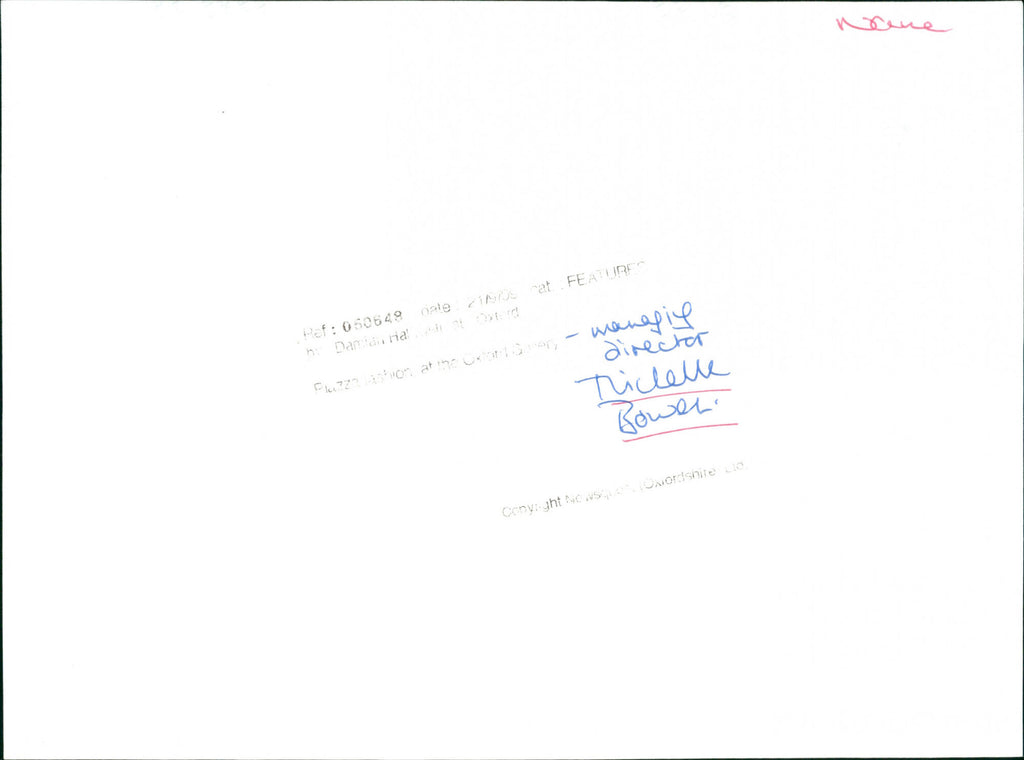 Ref : 050648 date : 21/9/05 cat : FEATURES
by : Damian Hal at : Oxford
Piazza fashion, at the Oxford
- managing
director
Michelle
Bowen.
Copyright Newsquest (Oxfordshire) Ltd.